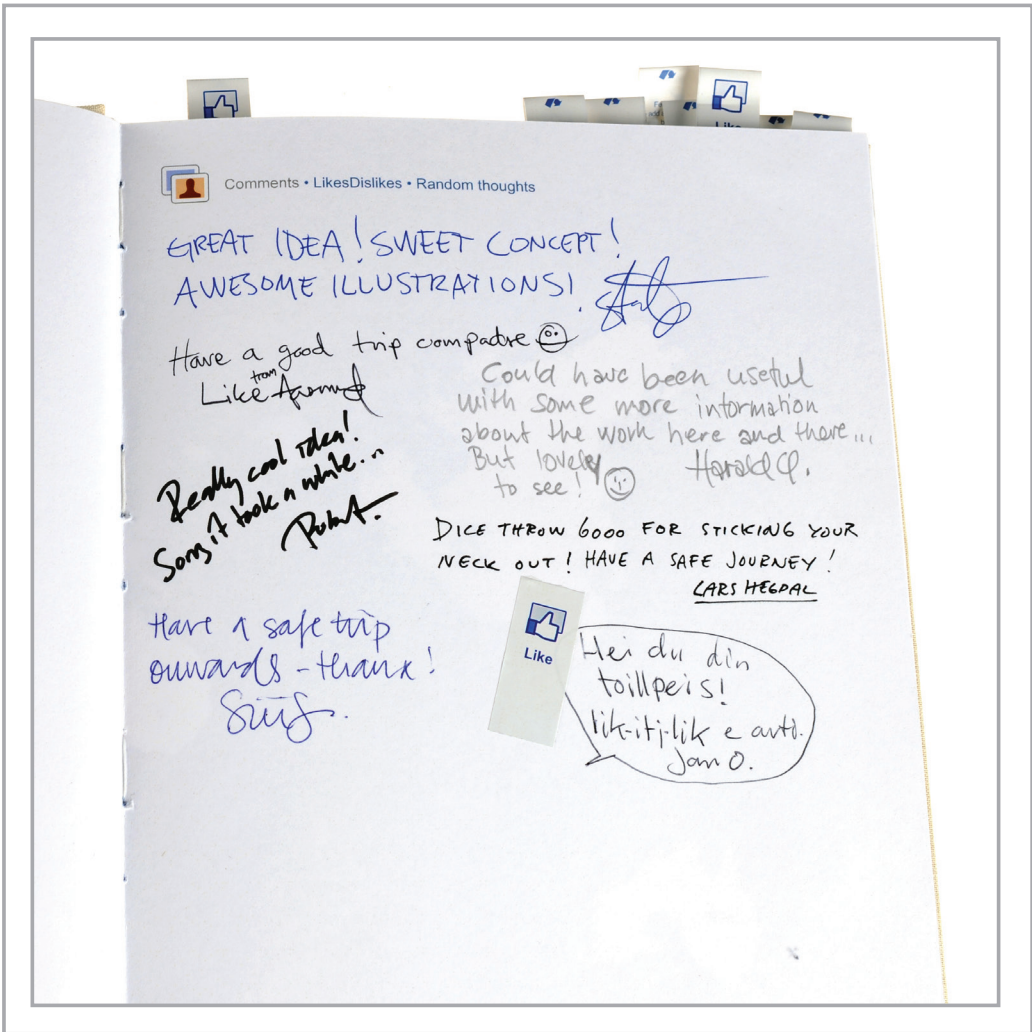 Like
Comments • LikesDislikes • Random thoughts
GREAT IDEA! SWEET CONCEPT!
AWESOME ILLUSTRATIONS!
Have a good trip compadre
Like from
Could have been useful
with some more information
about the work here and there...
But lovely
to see!
Harald Q.
Really cool idea!
Sorry it took a while...
DICE THROW 6000 FOR STICKING YOUR
NECK OUT! HAVE A SAFE JOURNEY!
LARS HEGDAL
Have a safe trip
onwards - thanx!
Like
Hei du din
toillpeis!
lik-itj-lik e artb.
Jan O.